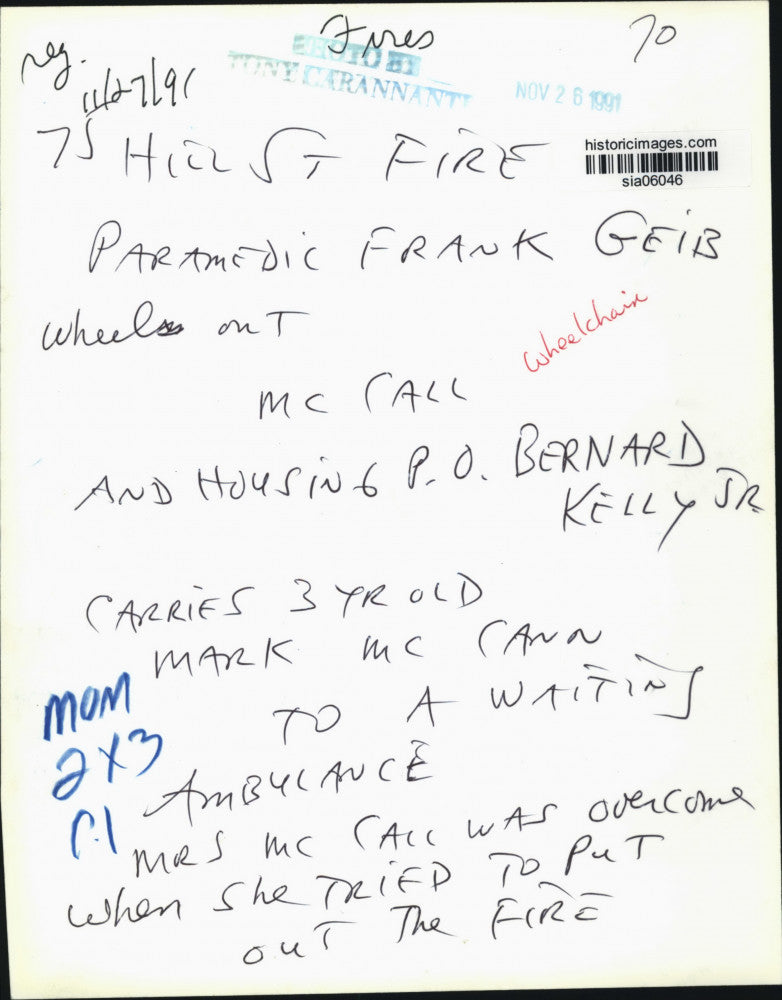 Fires
70
reg.
11/27/91
PHOTO BY
TONY CARANNANTE
NOV 26 1991
75 HILL ST FIRE
historicimages.com
sia06046
PARAMEDIC FRANK GEIB
wheels out
wheelchair
MC CALL
AND HOUSING P.O. BERNARD
KELLY JR.
CARRIES 3 YR OLD
MARK MC CANN
TO A WAITING
MOM
2x3
P.1
AMBULANCE
MRS MC CALL WAS OVERCOME
when she TRIED TO PUT
OUT The FIRE